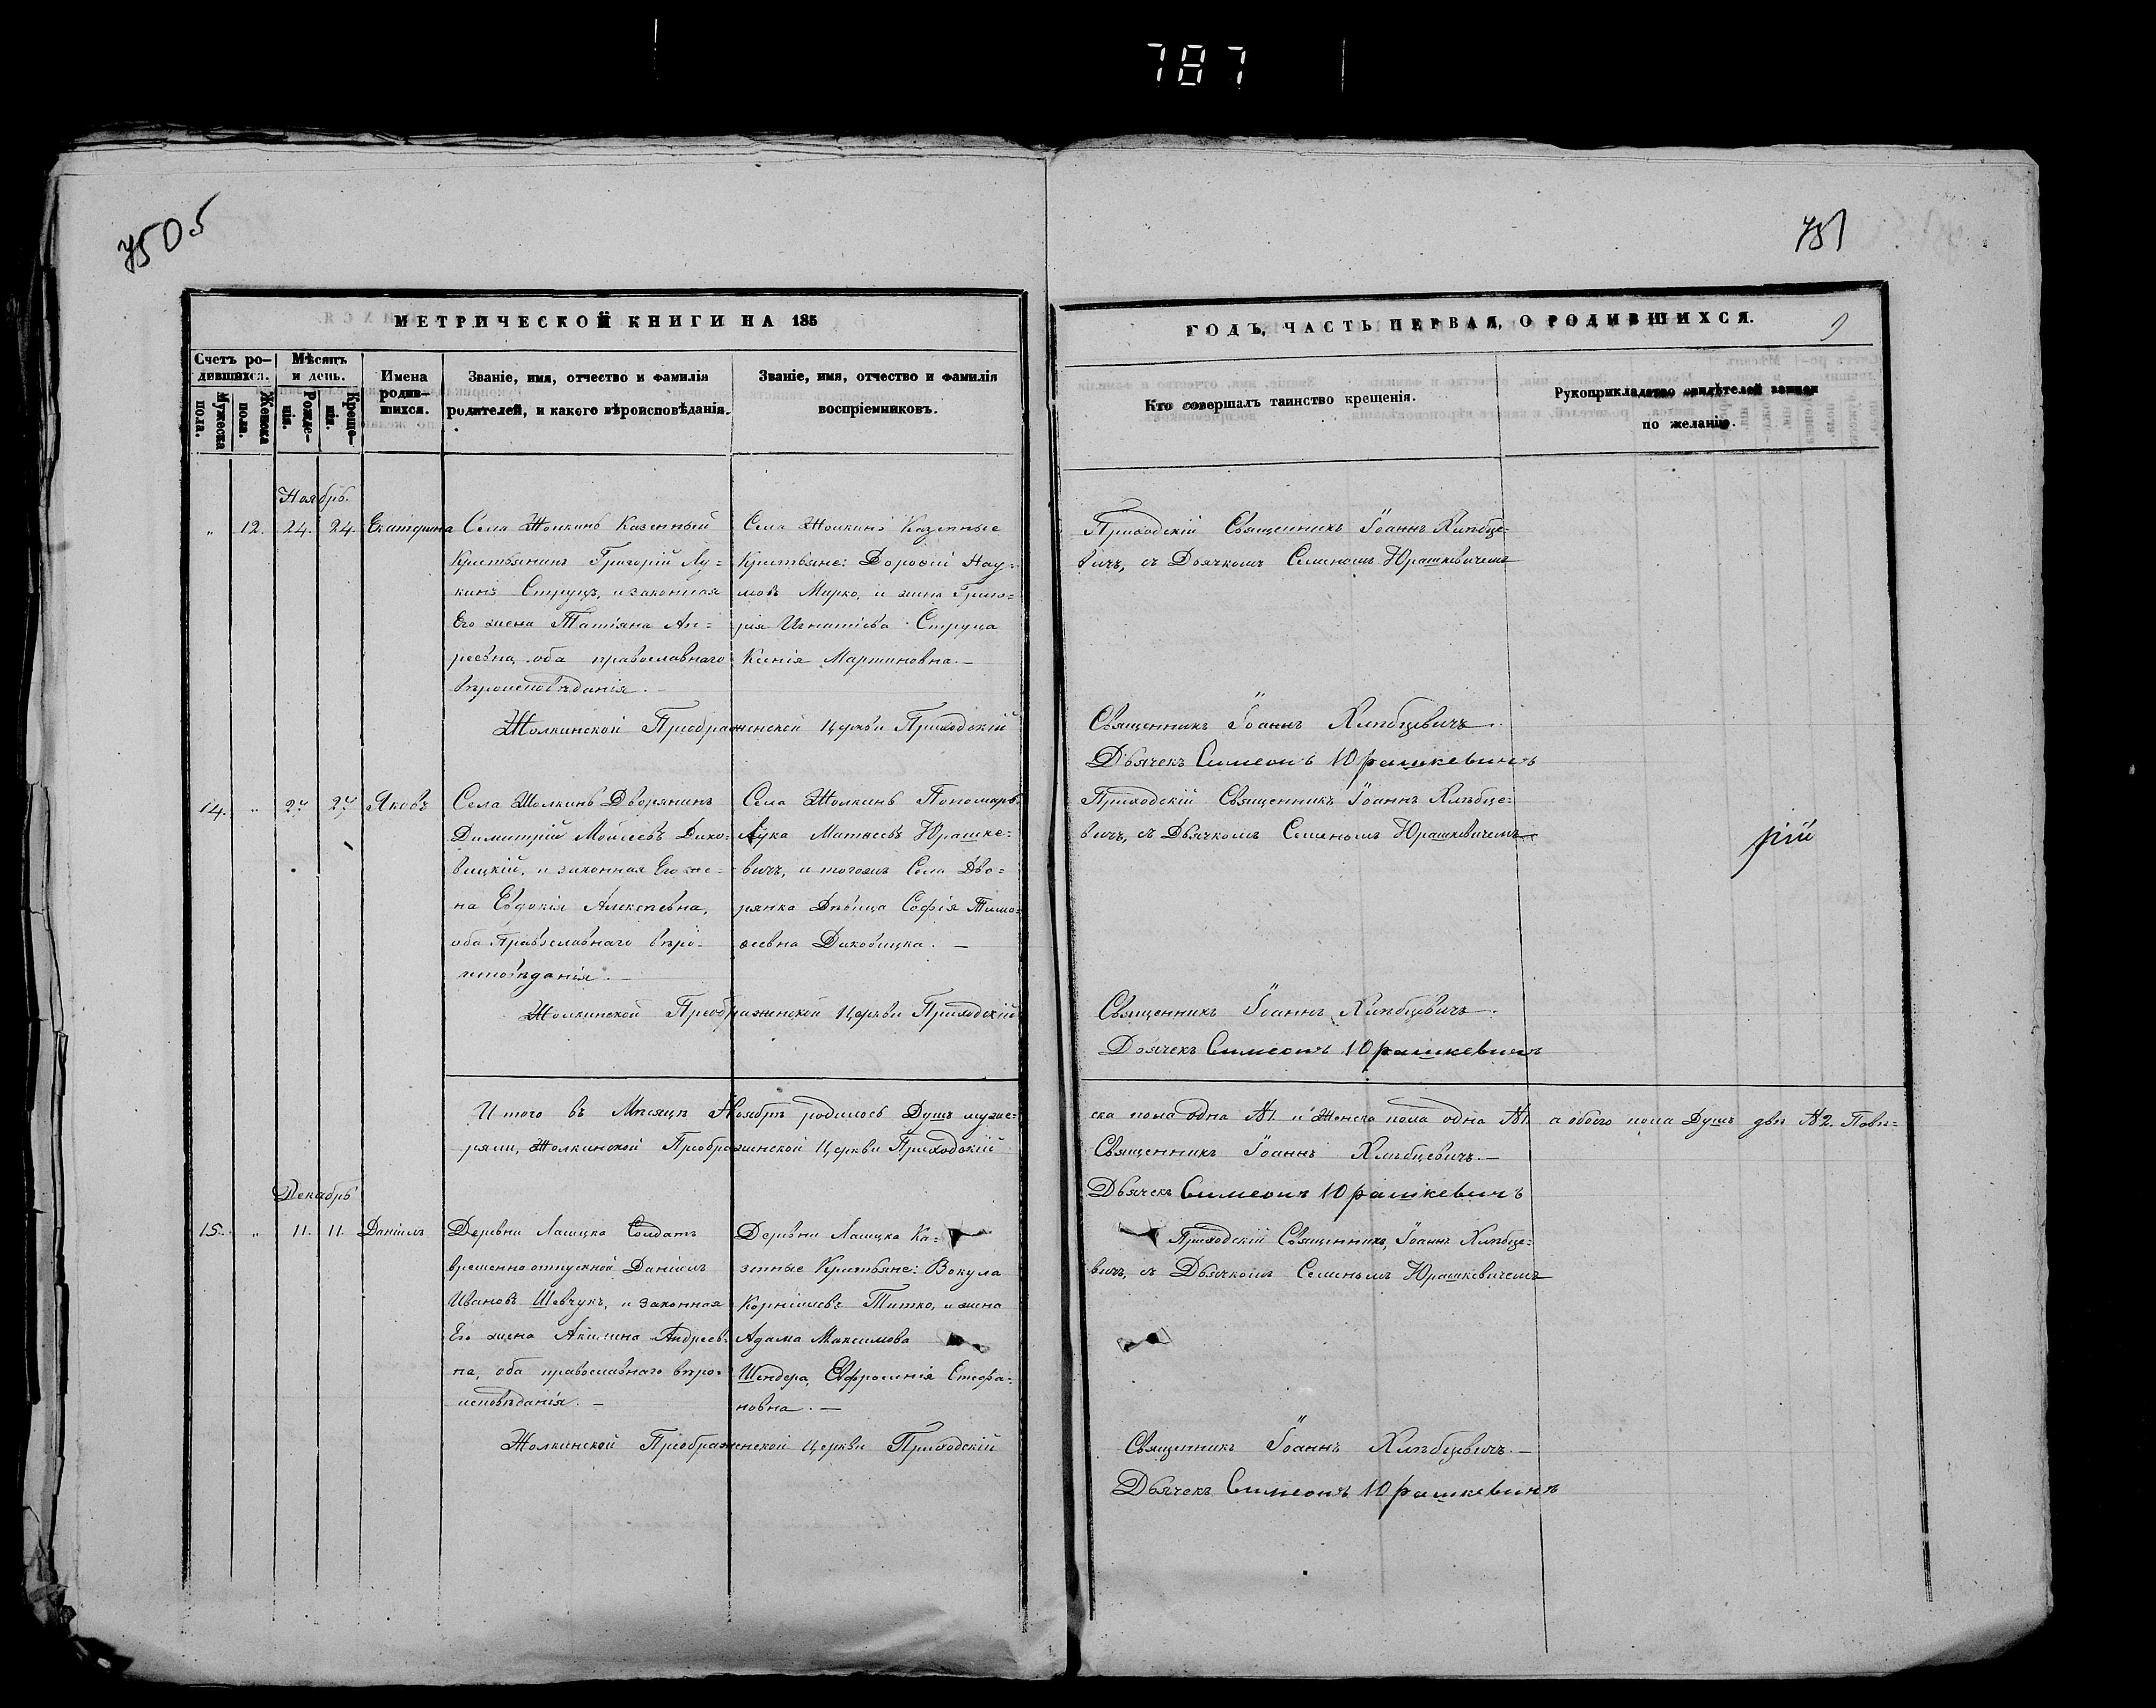 787
750 5
751
МЕТРИЧЕСКОЙ КНИГИ НА 185
ГОДЪ, ЧАСТЬ ПЕРВАЯ, О РОДИВШИХСЯ.
9
Счетъ ро-
дившихся.
Мужеска
пола.
Женска
пола.
Мѣсяцъ
и день.
Рожде-
нія.
Креще-
нія.
Имена
родив-
шихся.
Званіе, имя, отчество и фамилія
родителей, и какого вѣроисповѣданія.
Званіе, имя, отчество и фамилія
воспріемниковъ.
Кто совершалъ таинство крещенія.
Рукоприкладство свидѣтелей записи
по желанію.
Ноябрь.
" 12. 24. 24. Екатерина
Села Жолкинь Казенный
Крестьянинъ Григорій Лу-
кинъ Струцъ, и законная
Его жена Татіана Ан-
реевна, оба православнаго
вѣроисповѣданія. —
Села Жолкинь Казенные
Крестьяне: Дорофій Нау-
мовъ Мирко, и жена Григо-
рія Игнатіева Струца
Ксенія Мартиновна. —
Приходскій Священникъ Іоаннъ Хлѣбце-
вичъ, съ Дьячкомъ Семеномъ Юрашкевичемъ
Жолкинской Преображенской Церкви Приходскій
Священникъ Іоаннъ Хлѣбцевичъ.
Дьячекъ Симеонъ Юрашкевичъ
14. " 27 27 Яковъ
Села Жолкинь Дворянинъ
Димитрій Мойсеевъ Дико-
вицкій, и законная Его же-
на Евдокія Алексѣевна,
оба Православнаго вѣро-
исповѣданія. —
Села Жолкинь Пономарь
Лука Матвеевъ Юрашке-
вичъ, и тогожъ Села Дво-
рянка Дѣвица Софія Тимо-
феевна Диковицка. —
Приходскій Священникъ Іоаннъ Хлѣбце-
вичъ, съ Дьячкомъ Семеномъ Юрашкевичемъ
рій
Жолкинской Преображенской Церкви Приходскій
Священникъ Іоаннъ Хлѣбцевичъ.
Дьячекъ Симеонъ Юрашкевичъ
Итого въ Мѣсяцѣ Ноябрѣ родилось Душъ муже-
ска пола одна №1. и Женска пола одна №1. а обоего пола Душъ двѣ №2. Повѣ-
ряли, Жолкинской Преображенской Церкви Приходскій
Священникъ Іоаннъ Хлѣбцевичъ. —
Дьячекъ Симеонъ Юрашкевичъ
Декабрь
15. " 11. 11. Даніилъ
Деревни Лашцка Солдатъ
временно отпускной Даніилъ
Ивановъ Шевчукъ, и законная
Его жена Акилина Андреев-
на, оба православнаго вѣро-
исповѣданія. —
Деревни Лашцка Ка-
зенные Крестьяне: Вокула
Корніліевъ Титко, и жена
Адама Максимова
Шендера, Евфросинія Стефа-
новна. —
Приходскій Священникъ, Іоаннъ Хлѣбце-
вичъ, съ Дьячкомъ Семеномъ Юрашкевичемъ
Жолкинской Преображенской Церкви Приходскій
Священникъ Іоаннъ Хлѣбцевичъ. —
Дьячекъ Симеонъ Юрашкевичъ